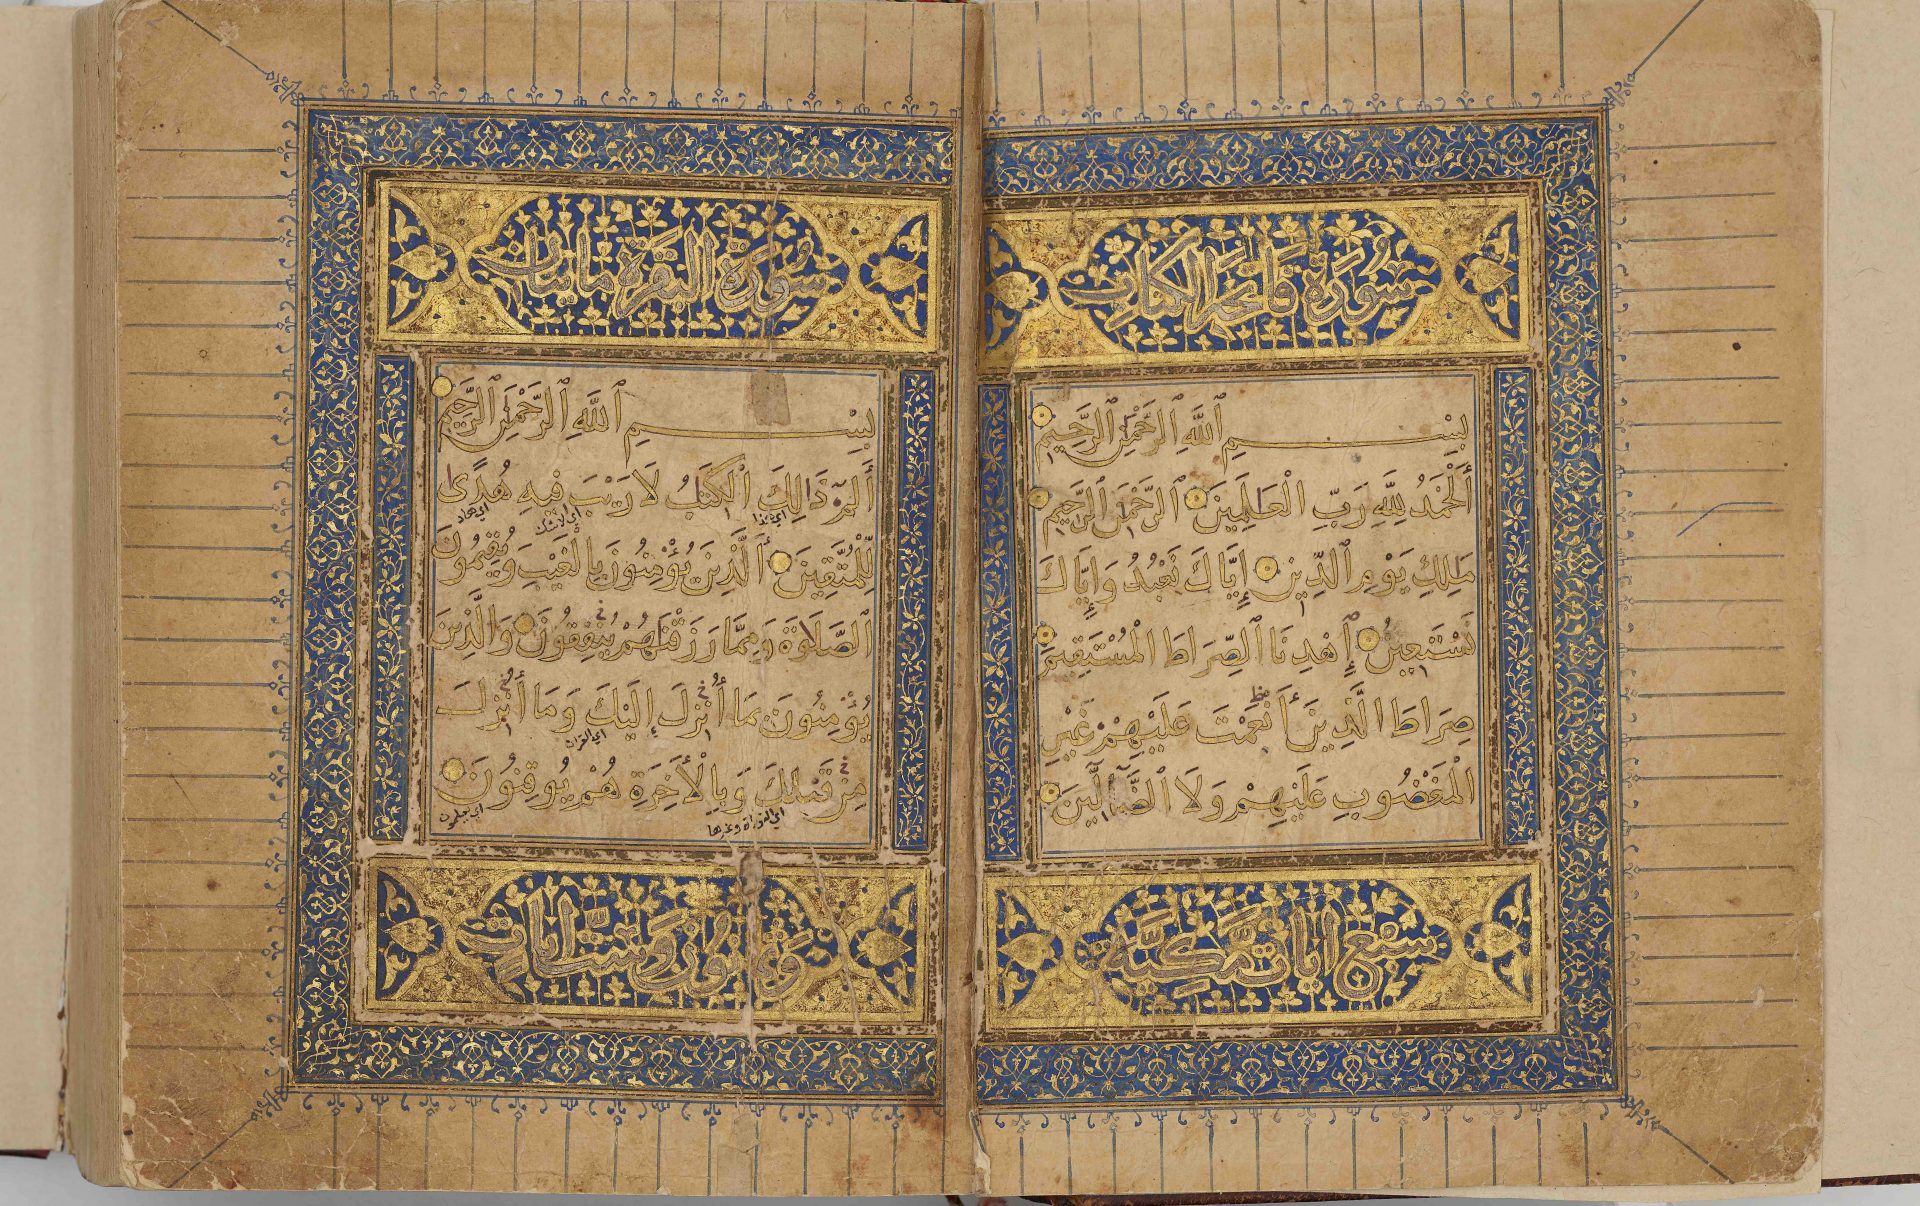 سُورَة فَاتِحَة الكِتَابِ
بِسْمِ ٱللَّهِ ٱلرَّحْمَنِ ٱلرَّحِيمِ
أَلْحَمْدُ لِلَّهِ رَبِّ الْعَالَمِينَ ٱلرَّحْمَنِ ٱلرَّحِيمِ
مَلِكِ يَوْمِ ٱلدِّينِ إِيَّاكَ نَعْبُدُ وَإِيَّاكَ
نَسْتَعِينُ إِهْدِنَا ٱلصِّرَاطَ الْمُسْتَقِيمَ
صِرَاطَ الَّذِينَ أَنْعَمْتَ عَلَيْهِمْ غَيْرِ
الْمَغْضُوبِ عَلَيْهِمْ وَلَا ٱلضَّآلِّينَ
سبع ايات مَكيَّة
سُورَة البَقَرَة مايتان
بِسْمِ ٱللَّهِ ٱلرَّحْمَنِ ٱلرَّحِيمِ
أَلٓمٓ ذَالِكَ الْكِتَبُ لَا رَيْبَ فِيهِ هُدًى
اي هذا اي لا شك اي هاد
لِلْمُتَّقِينَ أَلَّذِينَ يُؤْمِنُونَ بِالْغَيْبِ وَيُقِيمُونَ
ٱلصَّلَوٰةَ وَمِمَّا رَزَقْنَهُمْ يُنفِقُونَ وَالَّذِينَ
يُؤْمِنُونَ بِمَا أُنزِلَ إِلَيْكَ وَمَا أُنزِلَ
اي القران
مِن قَبْلِكَ وَبِالْأَخِرَةِ هُمْ يُوقِنُونَ
اي التوراة وغيرها اي يعلمون
وَثمنُون وَستّ ايَات